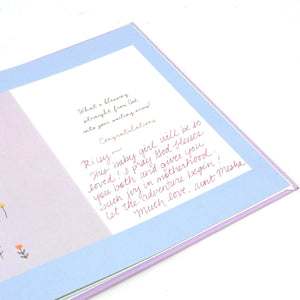 What a blessing
straight from God
into your waiting arms!
Congratulations
Riley~
This baby girl will be so
loved! I pray God blesses
you both and gives you
such joy in motherhood.
Let the adventure begin!
Much love, aunt Mesha